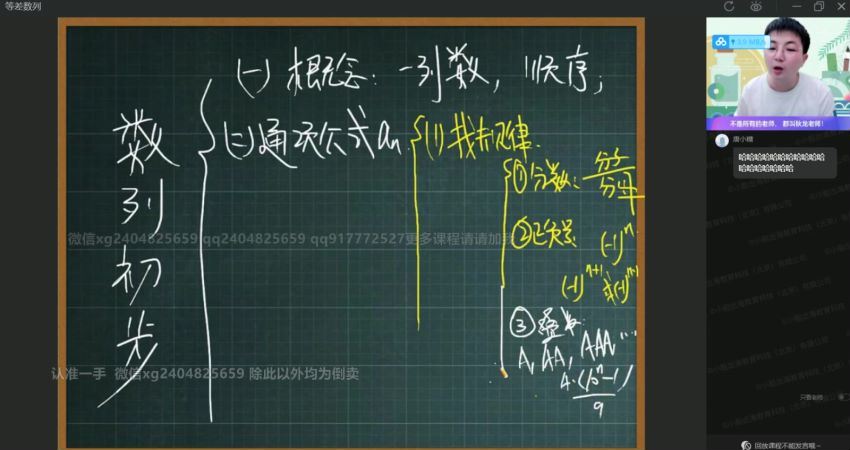 等差数列
(一) 概念: 一列数, 顺序;
数列初步
(二) 通项公式an
(1) 找规律.
① 分数: 分子/分母
② 正负号: (-1)^n
(-1)^{n+1} 或 (-1)^{n-1}
③ 叠数:
A, AA, AAA, ...
A·(10^n-1)/9
微信xg2404825659 qq2404825659 qq917772527更多课程请请加我
认准一手 微信xg2404825659 除此以外均为倒卖
3.9 MB/s
不是所有的老师, 都叫狄龙老师!
唐小糖
哈哈哈哈哈哈哈哈哈哈哈
哈哈哈哈哈哈哈
只看老师
回放课程不能发言哦~